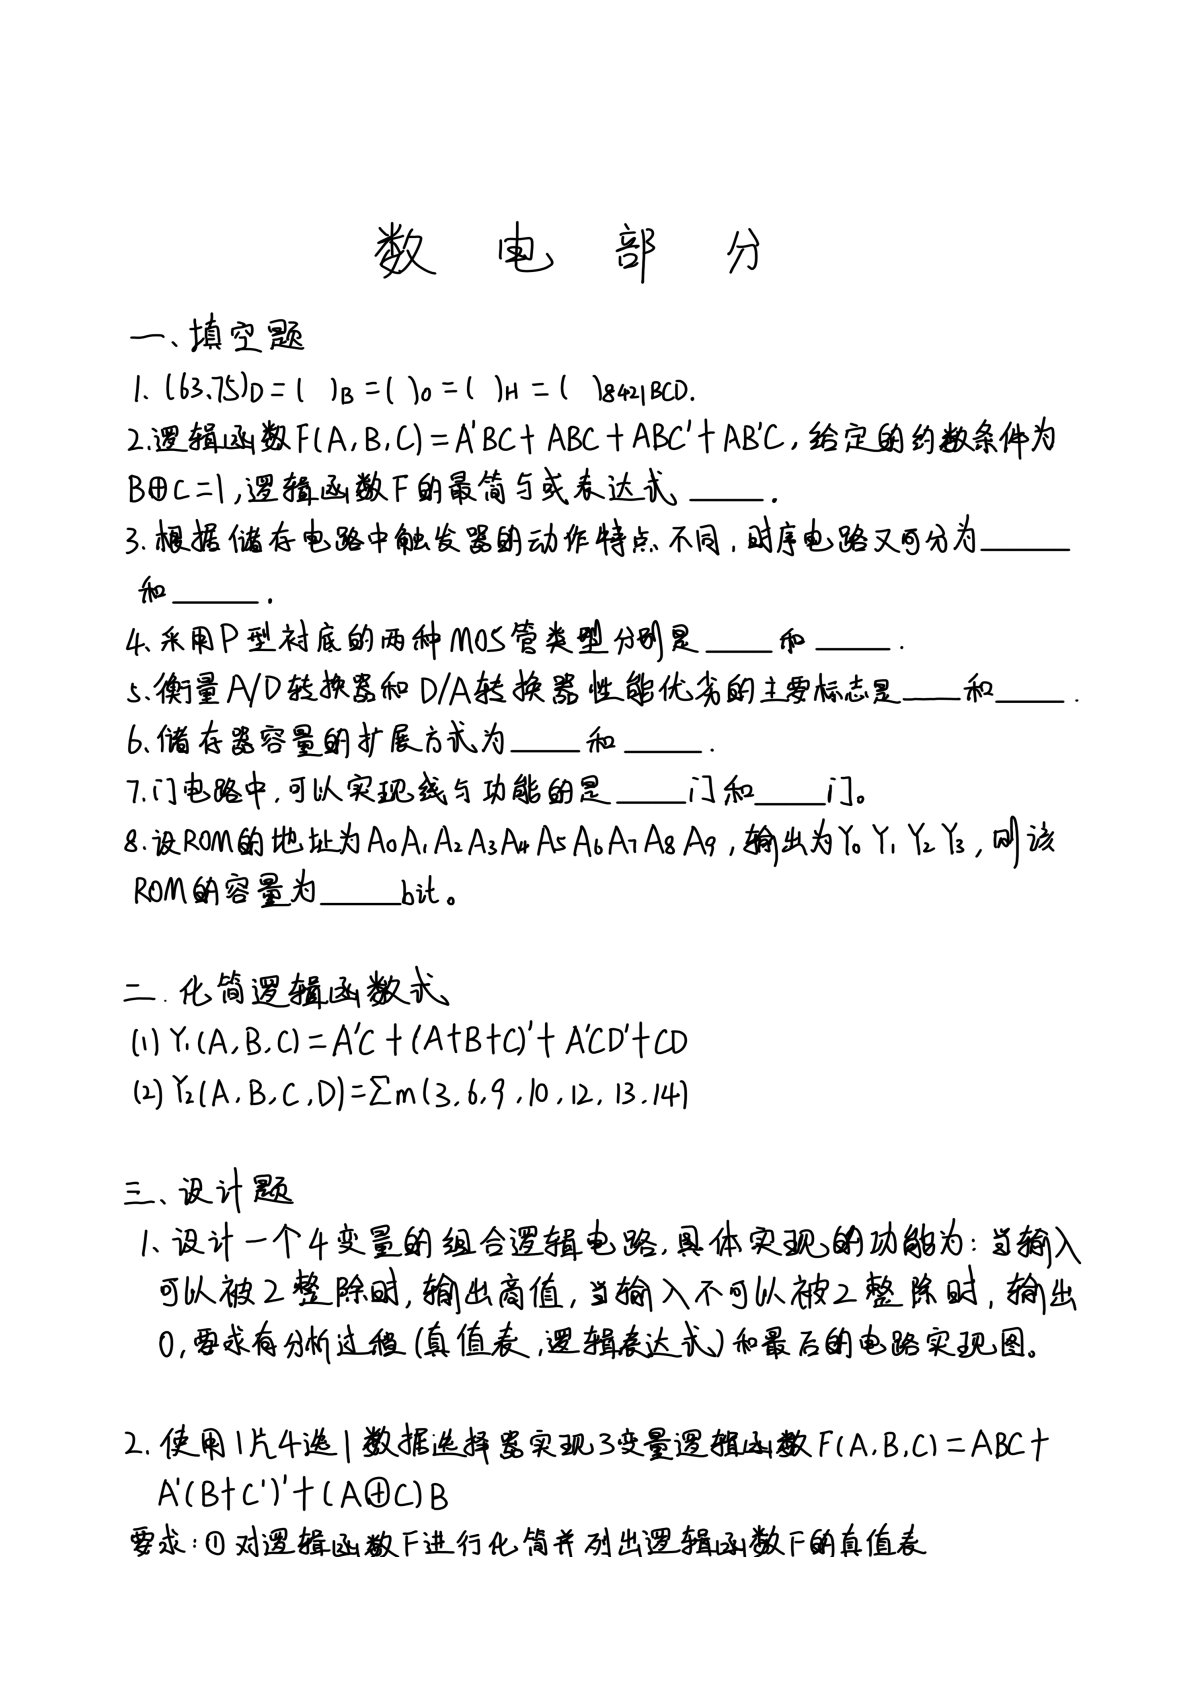 数电部分
一、填空题
1. (63.75)D = (  )B = (  )O = (  )H = (  )8421BCD.
2. 逻辑函数F(A,B,C)=A'BC+ABC+ABC'+AB'C, 给定的约数条件为
B⊕C=1, 逻辑函数F的最简与或表达式______.
3. 根据储存电路中触发器的动作特点不同, 时序电路又可分为______
和______.
4. 采用P型衬底的两种MOS管类型分别是______和______.
5. 衡量A/D转换器和D/A转换器性能优劣的主要标志是______和______.
6. 储存器容量的扩展方式为______和______.
7. 门电路中, 可以实现线与功能的是______门和______门。
8. 设ROM的地址为A0A1A2A3A4A5A6A7A8A9, 输出为Y0Y1Y2Y3, 则该
ROM的容量为______bit。
二. 化简逻辑函数式
(1) Y1(A,B,C)=A'C+(A+B+C)'+A'CD'+CD
(2) Y2(A,B,C,D)=∑m(3,6,9,10,12,13,14)
三、设计题
1、设计一个4变量的组合逻辑电路, 具体实现的功能为: 当输入
可以被2整除时, 输出高值, 当输入不可以被2整除时, 输出
0, 要求有分析过程(真值表, 逻辑表达式)和最后的电路实现图。
2. 使用1片4选1数据选择器实现3变量逻辑函数F(A,B,C)=ABC+
A'(B+C')'+(A⊕C)B
要求: ①对逻辑函数F进行化简并列出逻辑函数F的真值表